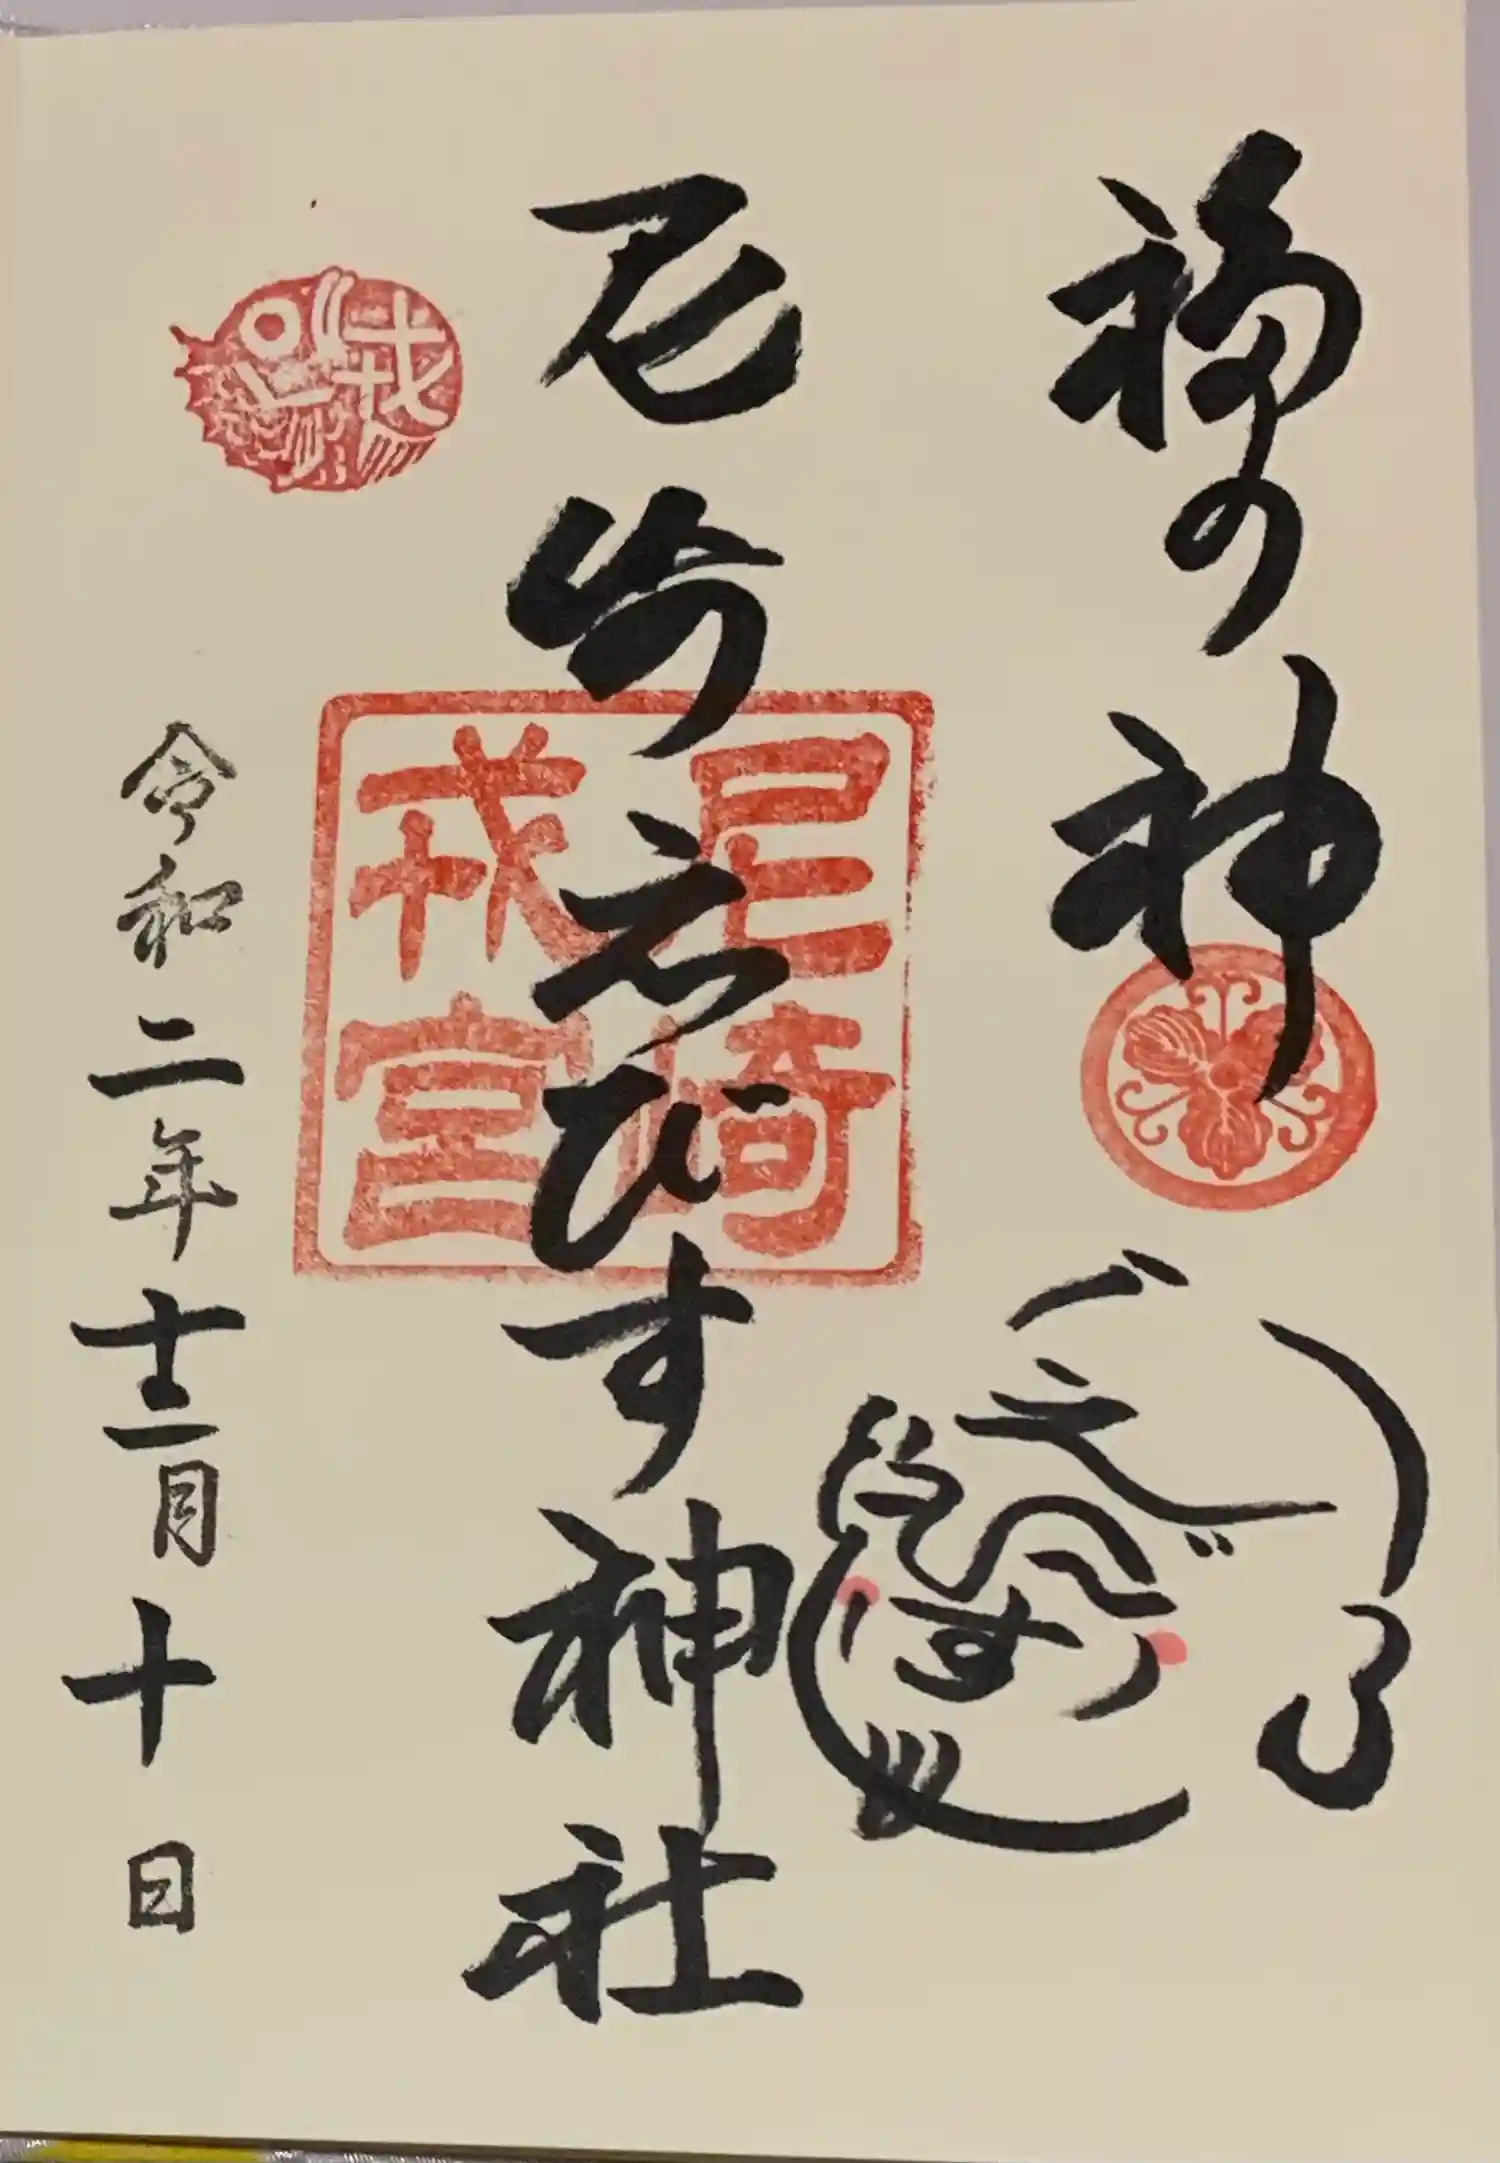 福の神
尼崎えびす神社
尼崎
戎宮
戎
えびす
令和二年十二月十日